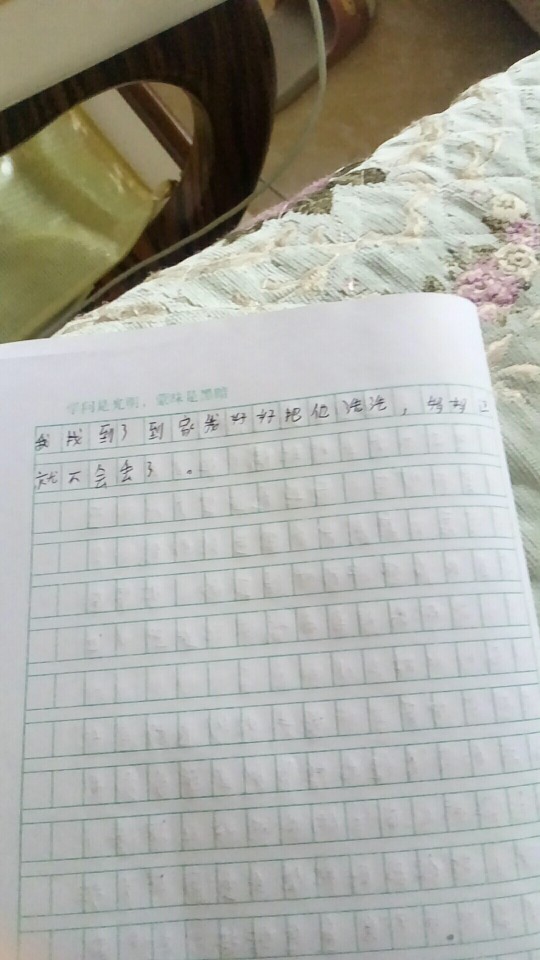 学问是光明，蒙昧是黑暗
我找到了到家我好好把他洗洗，
就不会丢了。